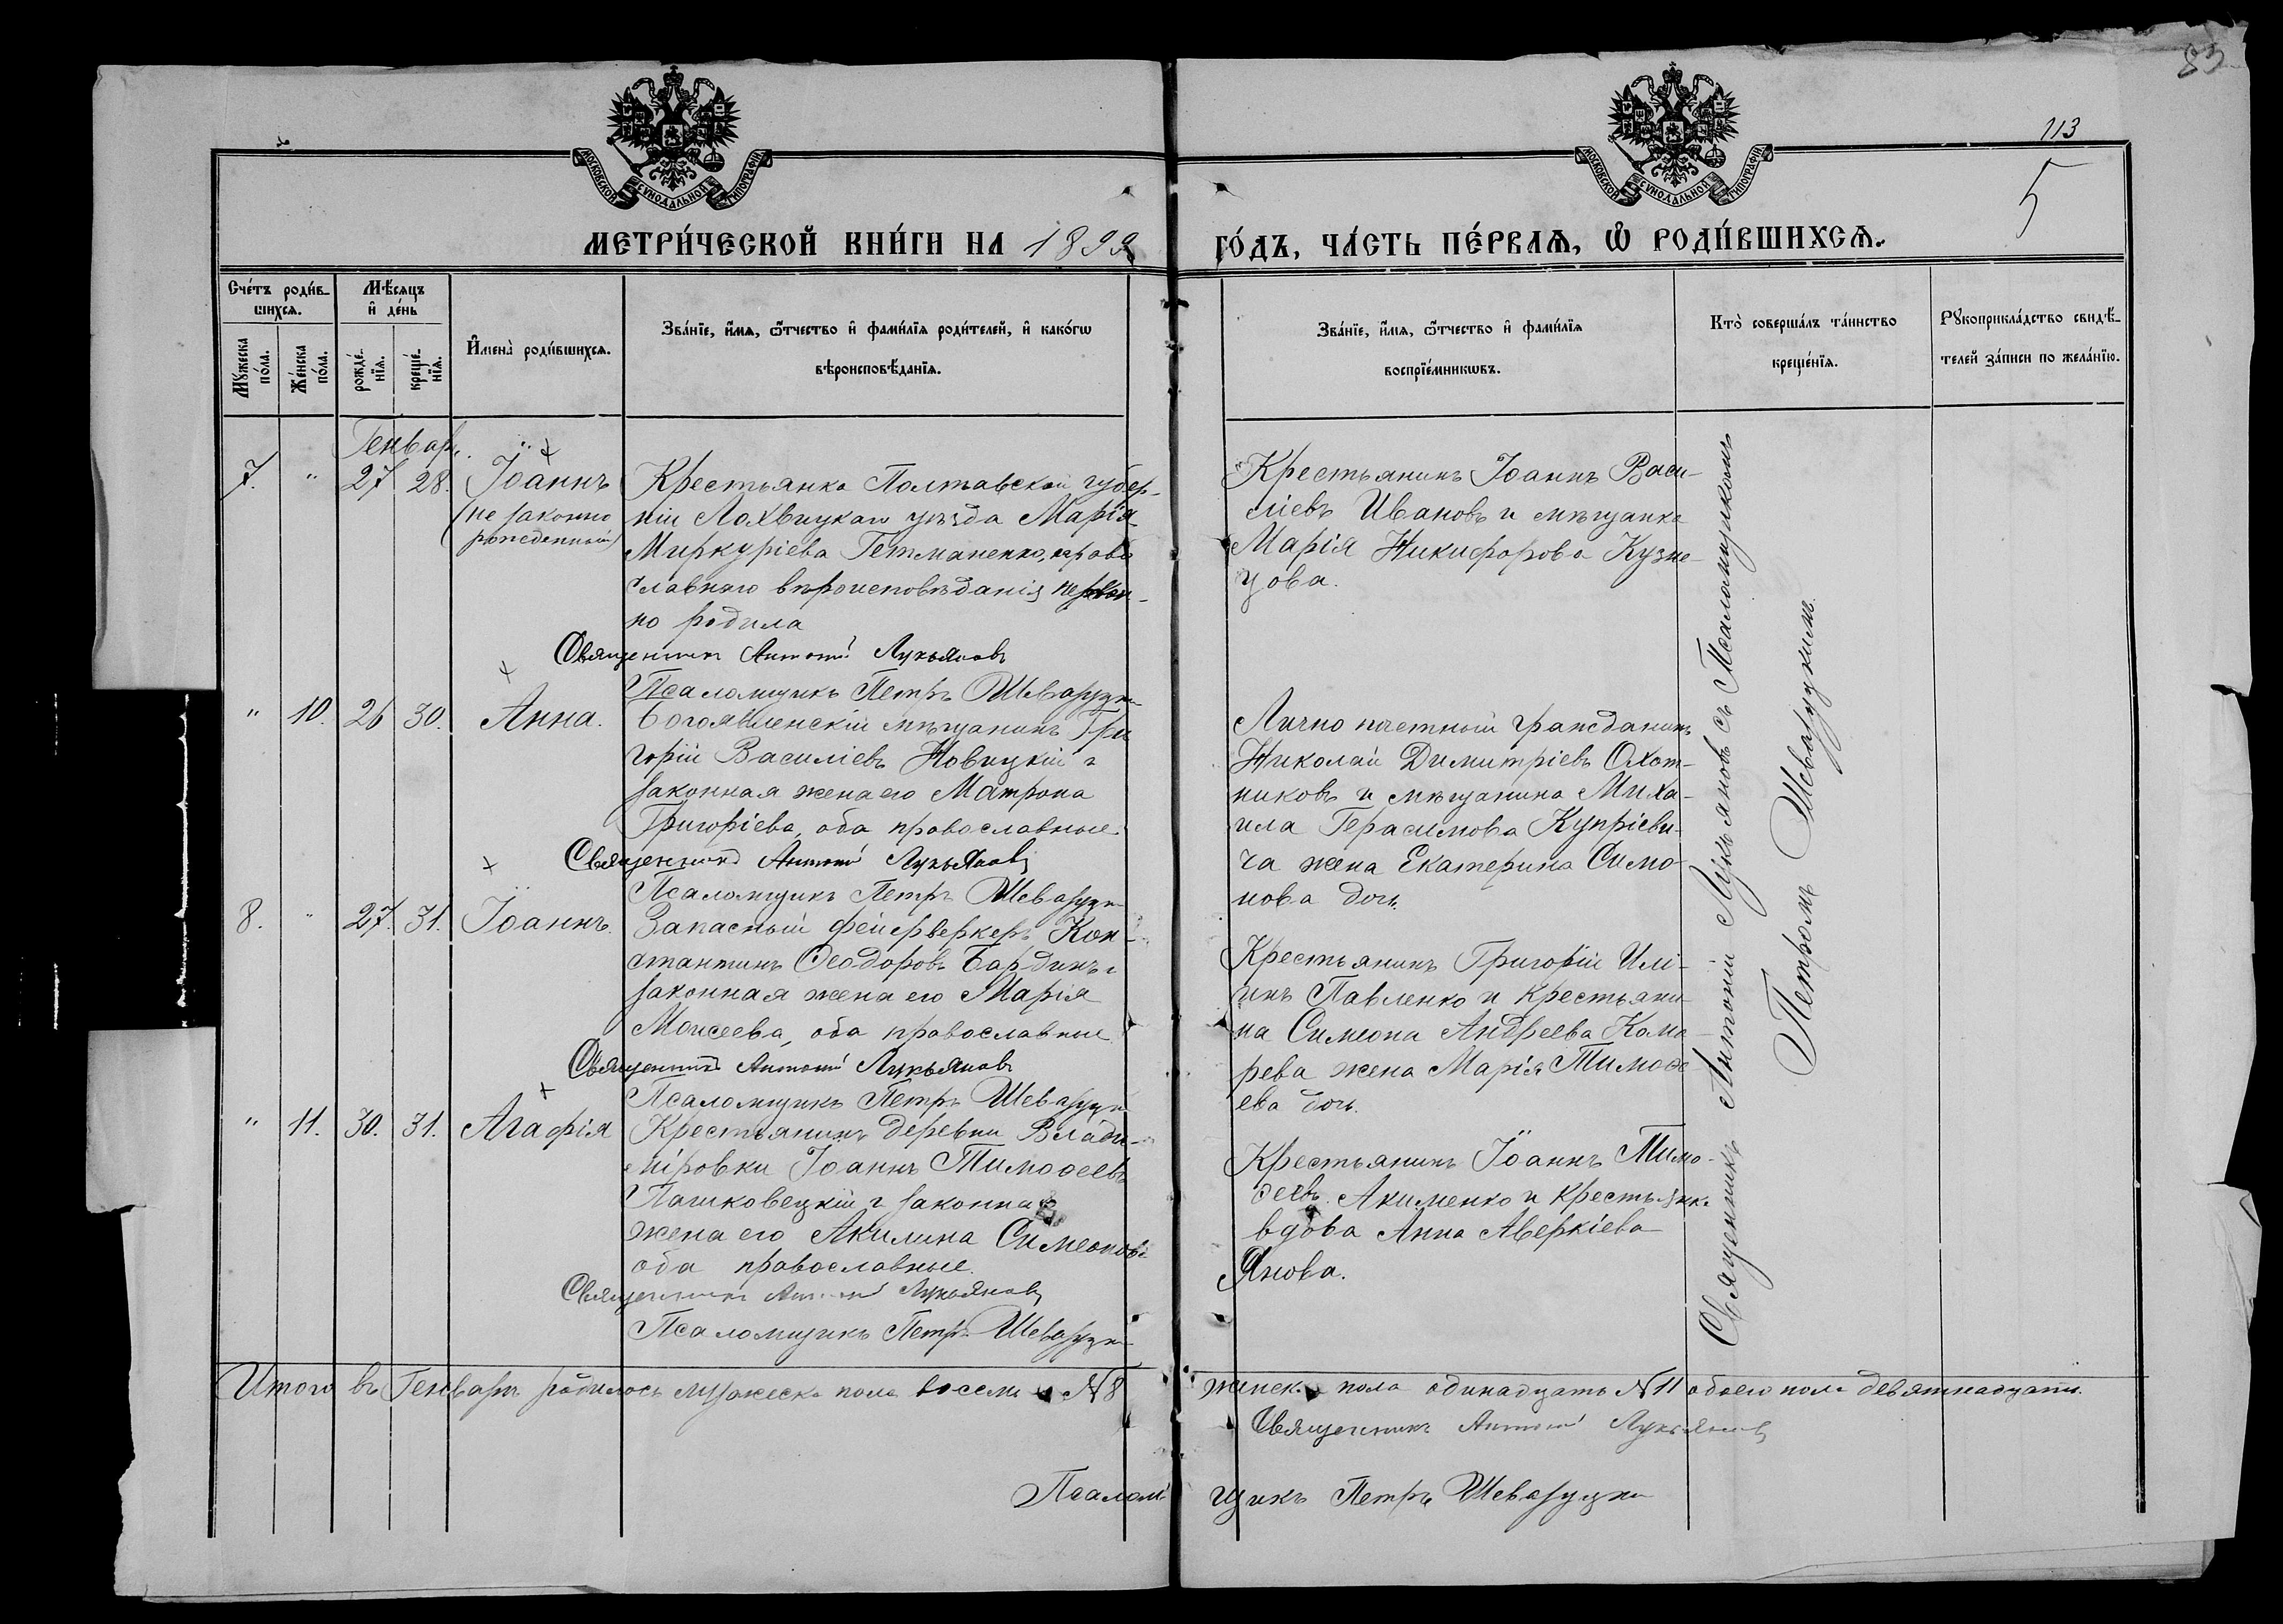 83
113
5
МОСКОВСКОЙ СУНОДАЛЬНОЙ ТИПОГРАФІИ
МОСКОВСКОЙ СУНОДАЛЬНОЙ ТИПОГРАФІИ
МЕТРИ́ЧЕСКОЙ КНИ́ГИ НА 1899
ГО́ДЪ, ЧА́СТЬ ПЕ́РВАѦ, Ѽ РОДИ́ВШИХСѦ.
Сче́тъ роди́в-
шихсѧ.
Мꙋ́жеска по́ла.
Же́нска по́ла.
Мѣ́сѧцъ и҆ де́нь
рожде́-нїѧ.
креще́-нїѧ.
И҆мена̀ роди́вшихсѧ.
Зва́нїе, и҆́мѧ, ѻ҆́тчество и҆ фами́лїѧ роди́телей, и҆ како́гѡ
вѣроисповѣ́данїѧ.
Зва́нїе, и҆́мѧ, ѻ҆́тчество и҆ фами́лїѧ
воспрїе́мникѡвъ.
Кто̀ соверша́лъ та́инство
креще́нїѧ.
Рꙋкоприкла́дство свидѣ́-
телей за́писи по жела́нїю.
Генварь
7. " 27 28. Іоаннъ
(не законно
рожденный)
Крестьянка Полтавской губер-
ніи Лохвицкаго уѣзда Марія
Меркуріева Гетманенко, право
славнаго вѣроисповѣданія
но родила
Священникъ Антоній Лукьяновъ
Псаломщикъ Петръ Шеваруцкій
Крестьянинъ Іоаннъ Васи-
ліевъ Ивановъ и мѣщанка
Марія Никифорова Кузне-
цова.
" 10. 26 30. Анна.
Богоявленскій мѣщанинъ Гри
горій Василіевъ Новицкій и
законная жена его Матрона
Григоріева, оба православные.
Священникъ Антоній Лукьяновъ
Псаломщикъ Петръ Шеваруцкій
Лично почетный гражданинъ
Николай Димитріевъ Охот-
никовъ и мѣщанина Миха-
ила Герасимова Купріеви-
ча жена Екатерина Симо-
нова дочь.
8. " 27. 31. Іоаннъ.
Запасный фейерверкеръ Кон-
стантинъ Ѳеодоровъ Бардинъ и
законная жена его Марія
Моисеева, оба православные
Священникъ Антоній Лукьяновъ
Псаломщикъ Петръ Шеваруцкій
Крестьянинъ Григорій Илі-
инъ Павленко и крестьяни-
на Симеона Андреева Кома-
рева жена Марія Тимоѳе
ева дочь.
" 11. 30. 31. Агафія
Крестьянинъ деревни Влади-
міровки Іоаннъ Тимоѳеевъ
Пашковецкій и законная
жена его Акилина Симеонова
оба православные.
Священникъ Антоній Лукьяновъ
Псаломщикъ Петръ Шеваруцкій
Крестьянинъ Іоаннъ Тимо-
ѳеевъ Акименко и крестьянка
вдова Анна Аверкіева
Янова.
Священникъ Антоній Лукьяновъ съ Псаломщикомъ
Петромъ Шеваруцкимъ.
Итого въ Генварѣ родилось мужеска пола восемь № 8 женска пола одинадцать № 11 обоего пола девятнадцать.
Священникъ Антоній Лукьяновъ
Псаломщикъ Петръ Шеваруцкій